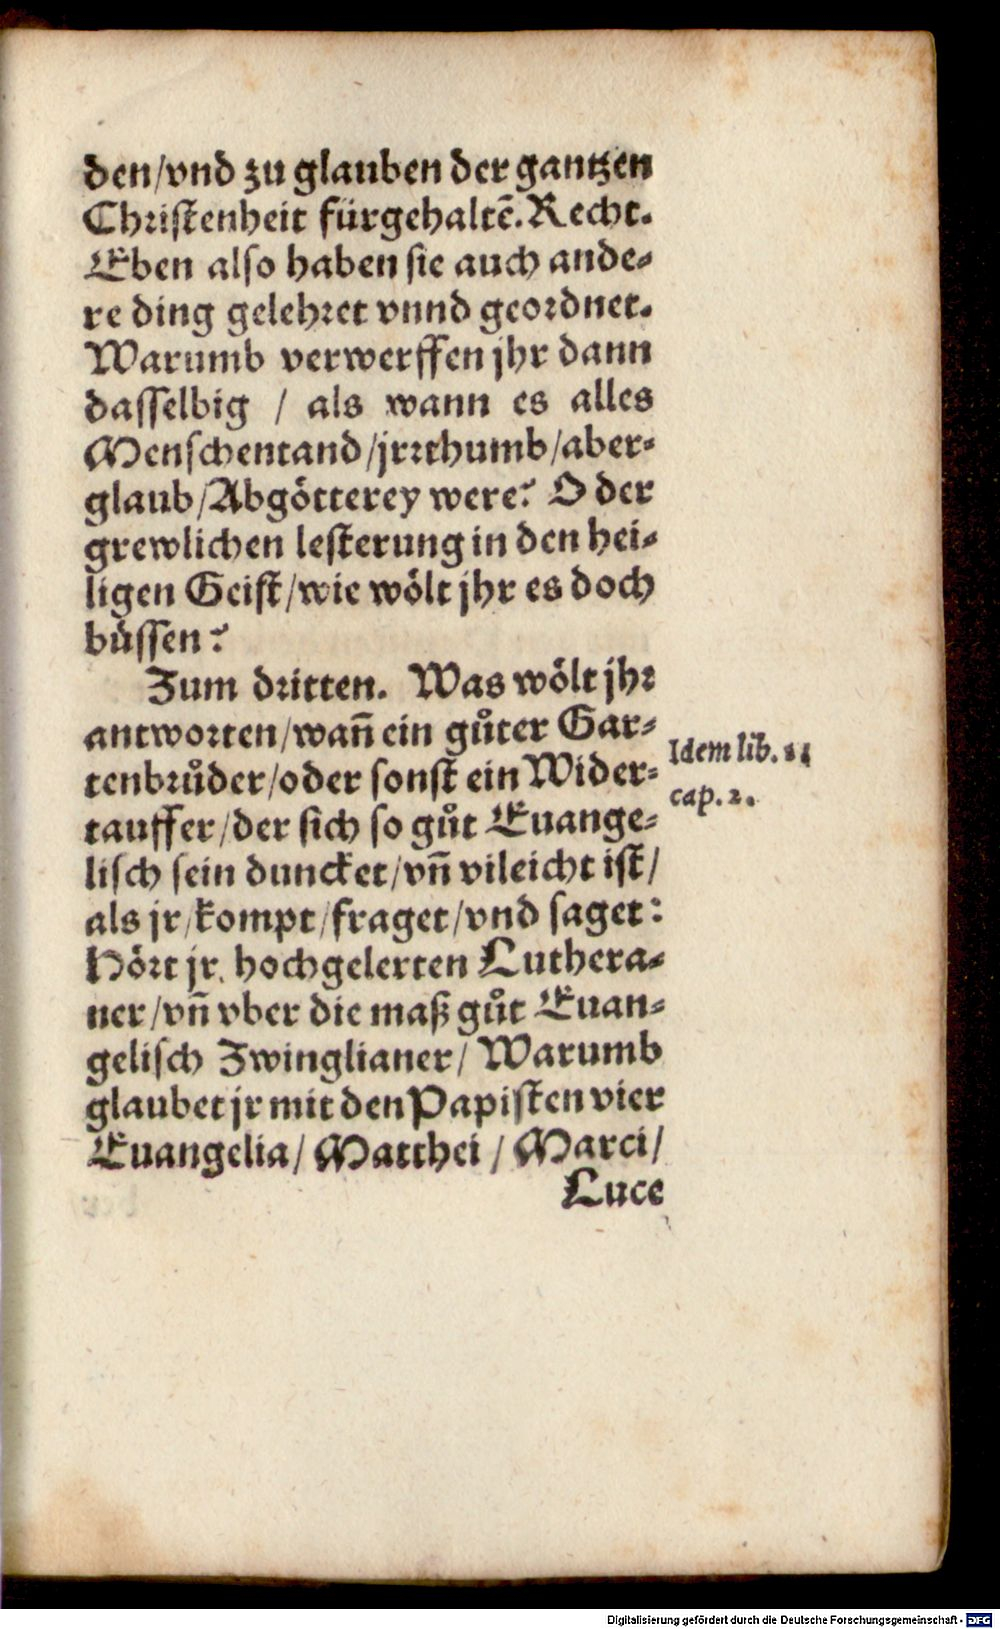 den/vnd zu glauben der gantzen
Christenheit fürgehaltē. Recht.
Eben also haben sie auch ande-
re ding gelehret vnnd geordnet.
Warumb verwerffen jhr dann
dasselbig / als wann es alles
Menschentand/jrrthumb/aber-
glaub/Abgötterey were? O der
grewlichen lesterung in den hei-
ligen Geist/wie wölt jhr es doch
büssen?
Zum dritten. Was wölt jhr
antworten/wañ ein gůter Gar-
tenbrůder/oder sonst ein Wider-
tauffer/der sich so gůt Euange-
lisch sein duncket/vñ vileicht ist/
als jr/kompt/fraget/vnd saget:
Hört jr hochgelerten Luthera-
ner/vñ vber die maß gůt Euan-
gelisch Zwinglianer/ Warumb
glaubet jr mit den Papisten vier
Euangelia/ Matthei / Marci/
Luce
Idem lib.
cap. 2.
Digitalisierung gefördert durch die Deutsche Forschungsgemeinschaft - DFG